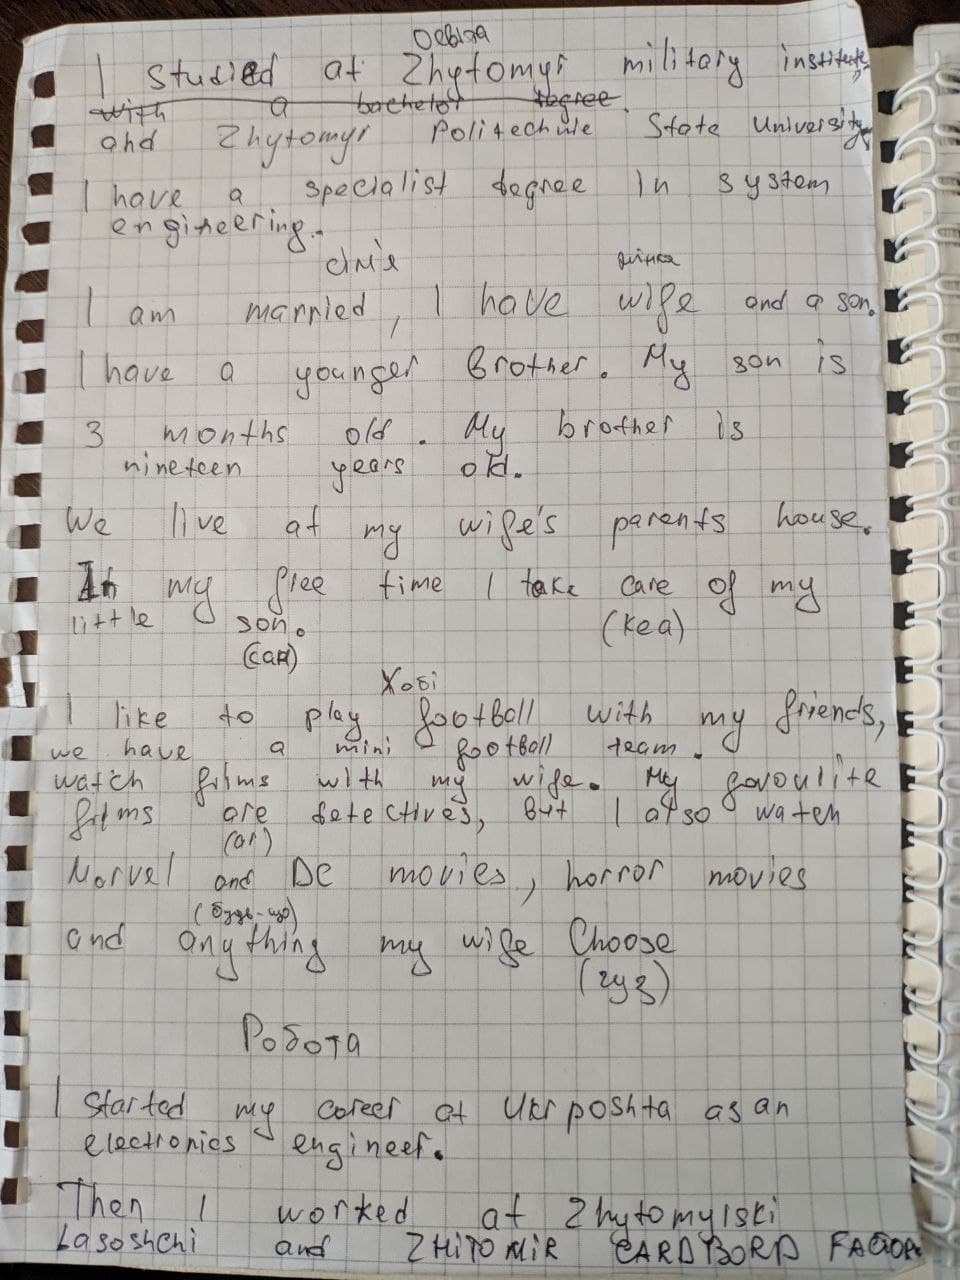 Освіта
I studied at Zhytomyr military institute
with a bachelor degree
and Zhytomyr Politechnic State University
I have a specialist degree in system
engineering.
сім'я
жінка
I am married, I have wife and a son.
I have a younger brother. My son is
3 months old. My brother is
nineteen years old.
We live at my wife's parents house.
In my free time I take care of my
little son.
(кеа)
(сан)
Хобі
I like to play football with my friends,
we have a mini football team.
watch films with my wife. My favourite
films are detectives, but I also watch
(ar)
Marvel and DC movies, horror movies
(будь-що)
and anything my wife Choose
(чуз)
Робота
I started my career at Ukrposhta as an
electronics engineer.
Then I worked at Zhytomyrski
Lasoshchi and ZHITOMIR CARDBORD FACTORY